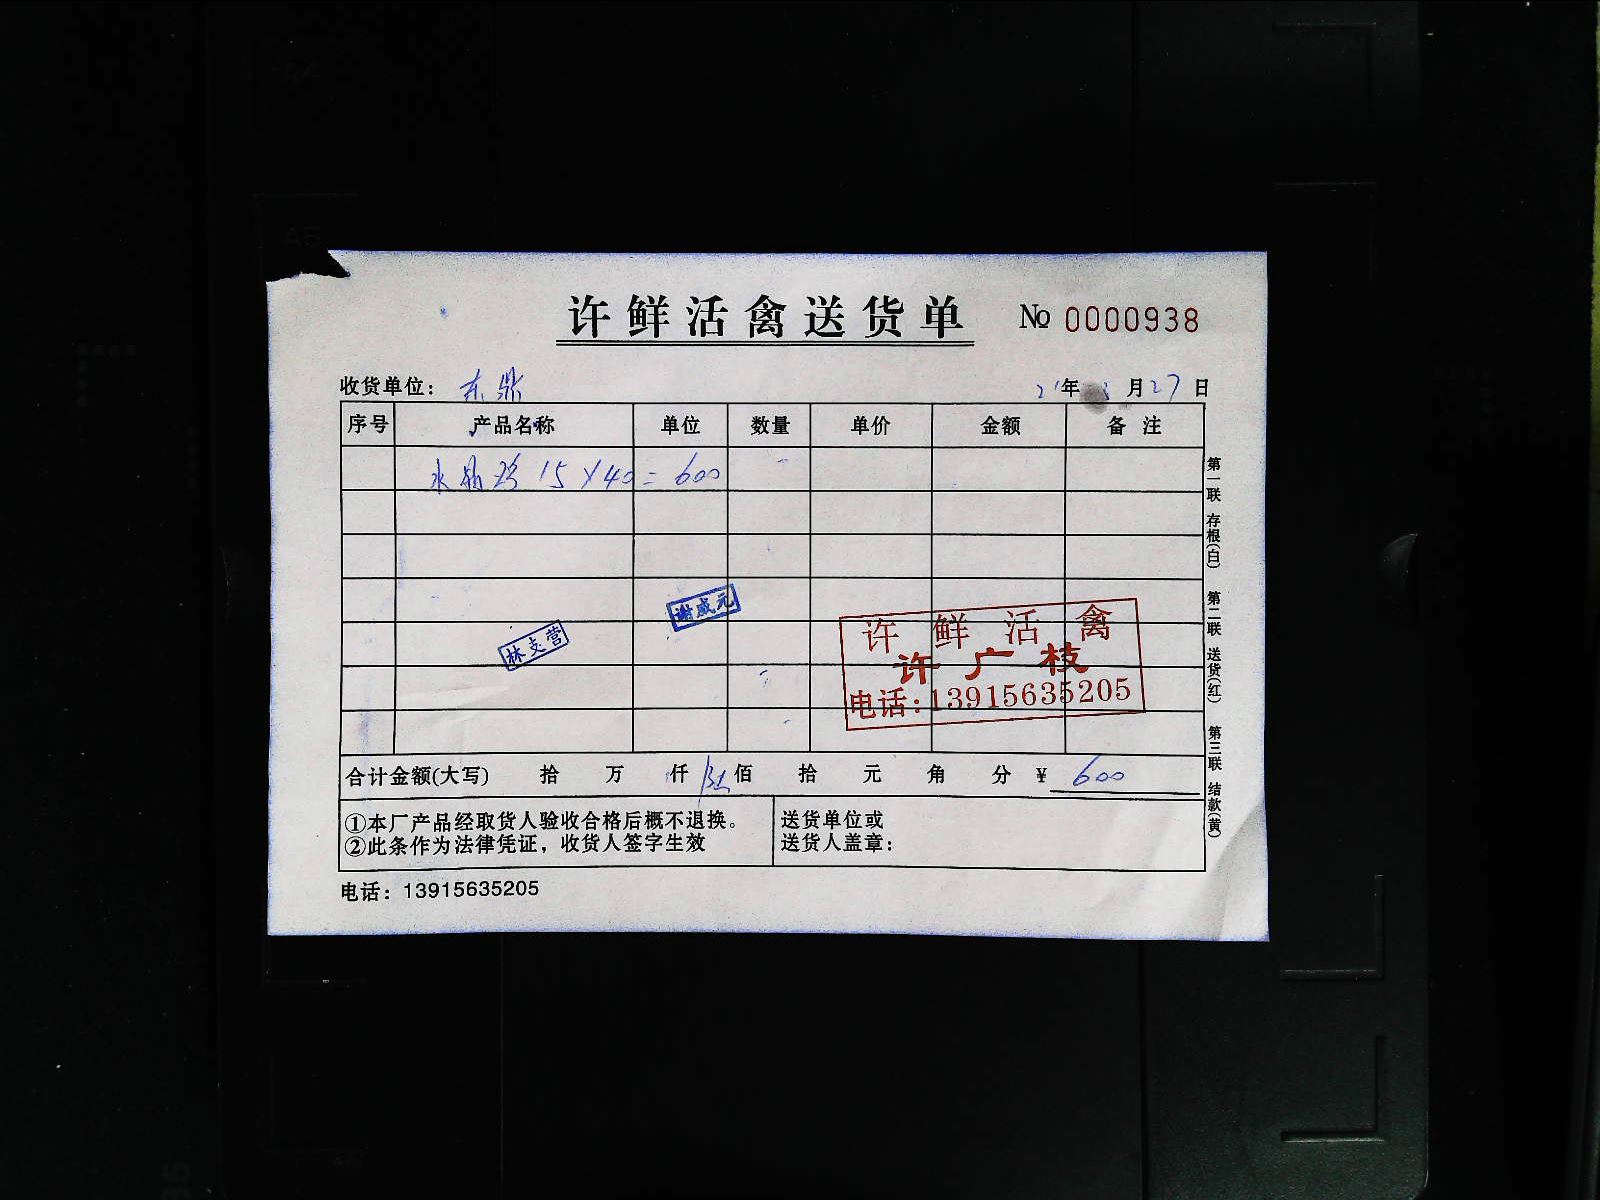 A5
许鲜活禽送货单 № 0000938
收货单位: 东鼎 21年 月27日
序号 产品名称 单位 数量 单价 金额 备注
15×40=600
谢威元
林支营
许鲜活禽
许广枝
电话:13915635205
合计金额(大写) 拾 万 仟 陆佰 拾 元 角 分 ¥ 600
①本厂产品经取货人验收合格后概不退换。
②此条作为法律凭证，收货人签字生效
送货单位或
送货人盖章:
电话: 13915635205
第一联 存根(白) 第二联 送货(红) 第三联 结款(黄)